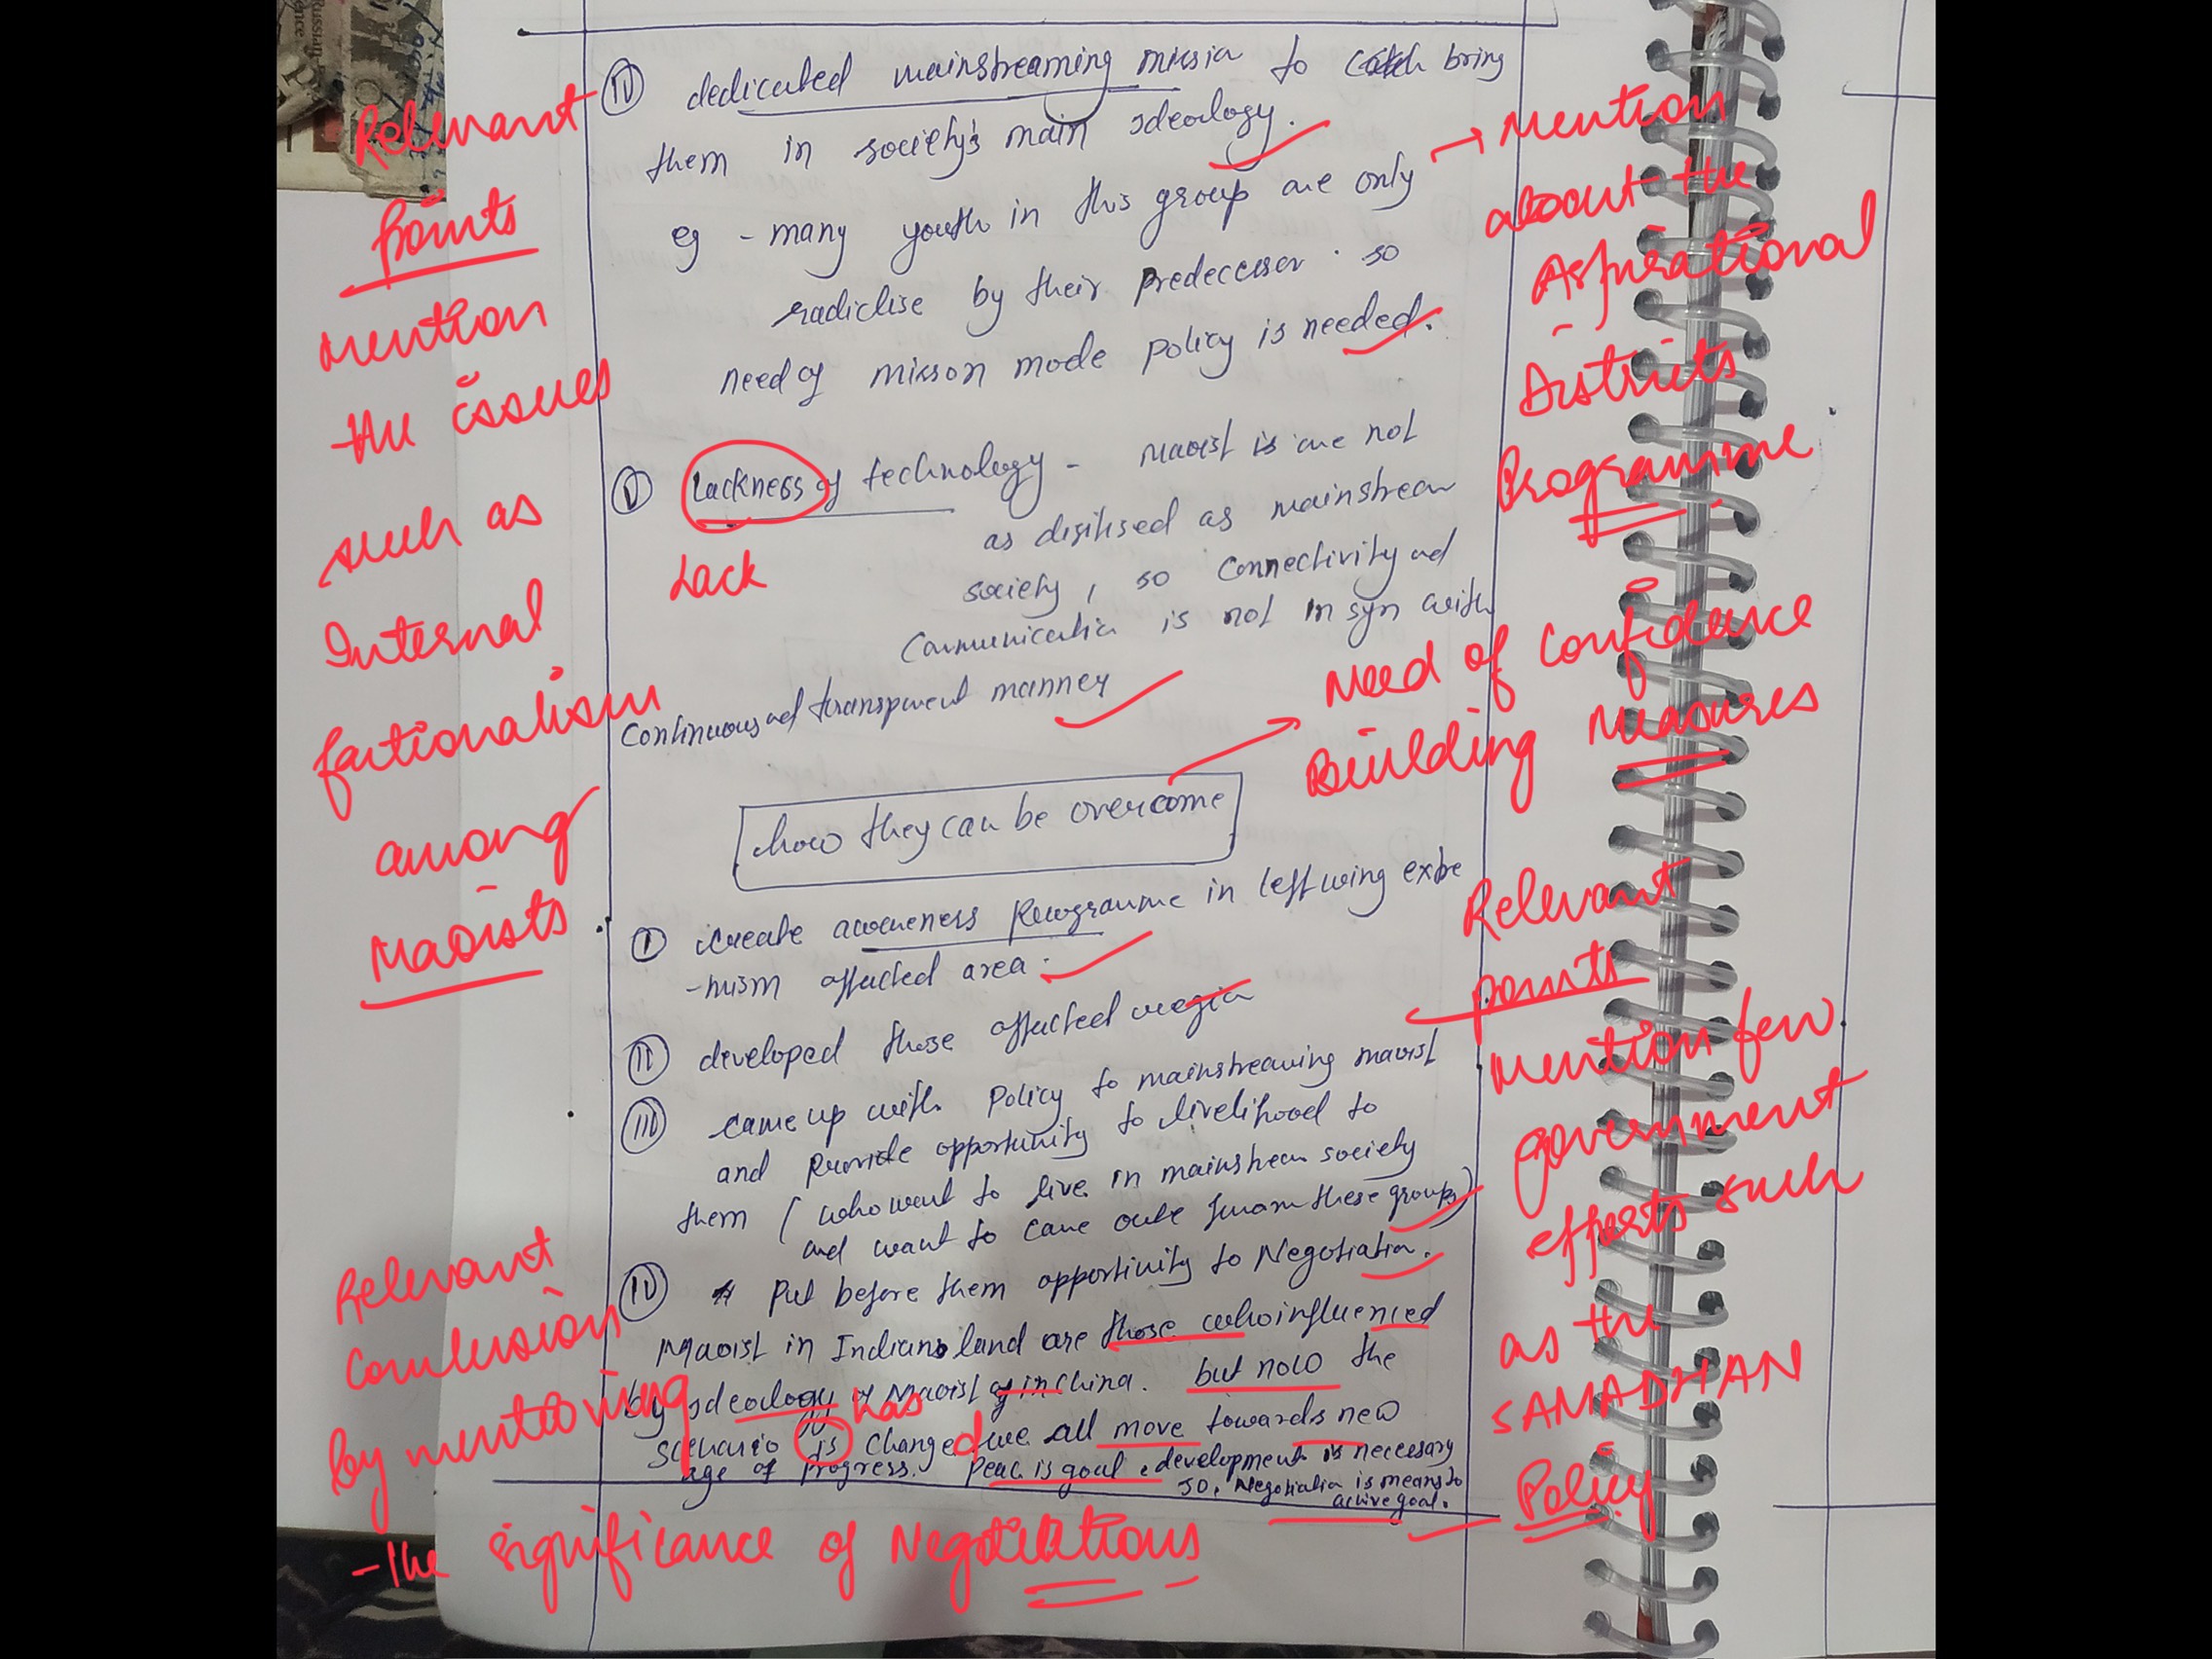 IV dedicated mainstreaming missin to bring
them in society's main ideology.
eg - many youth in this group are only
radiclise by their predeccesor. so
need of misson mode policy is needed.
V Lackness of technology - Maoist is are not
as disitised as mainstream
society, so connectivity ad
communication is not in syn with
continuous ad transparent manner
how they can be overcome
I create awareness programme in left wing extre
-mism affected area.
II developed those affected regin
III came up with policy to mainstreaming maoist
and provide opportunity to livelihood to
them (who want to live in mainstream society
and want to came oute from these groups)
IV Put before them opportinity to Negotiatin.
Maoist in Indian land are those who influenced
by ideology of Maoist in China. but now the
scenario is change we all move towards new
age of progress. Peac is goal, development is neccesary
so, Negotiatin is means to
achive goal.
Relevant
points
Mention
the issues
such as
Internal
factionalism
among
Maoists
Lack
→ Mention
about the
Aspirational
Districts
Programme
Need of Confidence
Building Measures
Relevant
points
Mention few
government
efforts such
as the
SAMADHAN
Policy
has
d
Relevant
conclusion
by mentioning
the significance of Negotiations